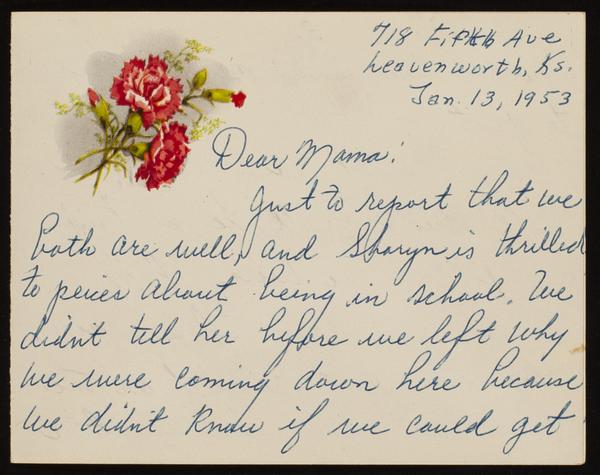 718 Fifth Ave
Leavenworth, Ks.
Jan. 13, 1953
Dear Mama:
Just to report that we
both are well, and Sharyn is thrilled
to peices about being in school. We
didn't tell her before we left why
we were coming down here because
we didn't know if we could get